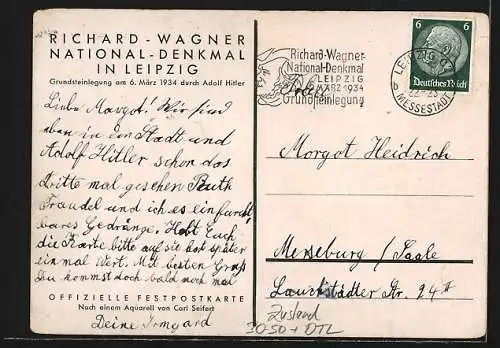 RICHARD - WAGNER
NATIONAL - DENKMAL
IN LEIPZIG
Grundsteinlegung am 6. März 1934 durch Adolf Hitler
Liebe Margot! Wir sind
eben in der Stadt und
Adolf Hitler schon das
Dritte mal gesehen Ruth
Traudel und ich es ein furcht
bares Gedränge. Hebt Euch
die Karte bitte auf sie hat später
ein mal Wert. Mit besten Gruß
Du kommst doch bald noch mal
OFFIZIELLE FESTPOSTKARTE
Nach einem Aquarell von Carl Seifert
Deine Irmgard
Richard-Wagner-
National-Denkmal
LEIPZIG
MÄRZ 1934
Grundsteinlegung
LEIPZIG
b
MESSESTADT
6 6
Deutsches Reich
Margot Heidrich
Merseburg / Saale
Lauchstädter Str. 24
Zustand
3050 + DTL